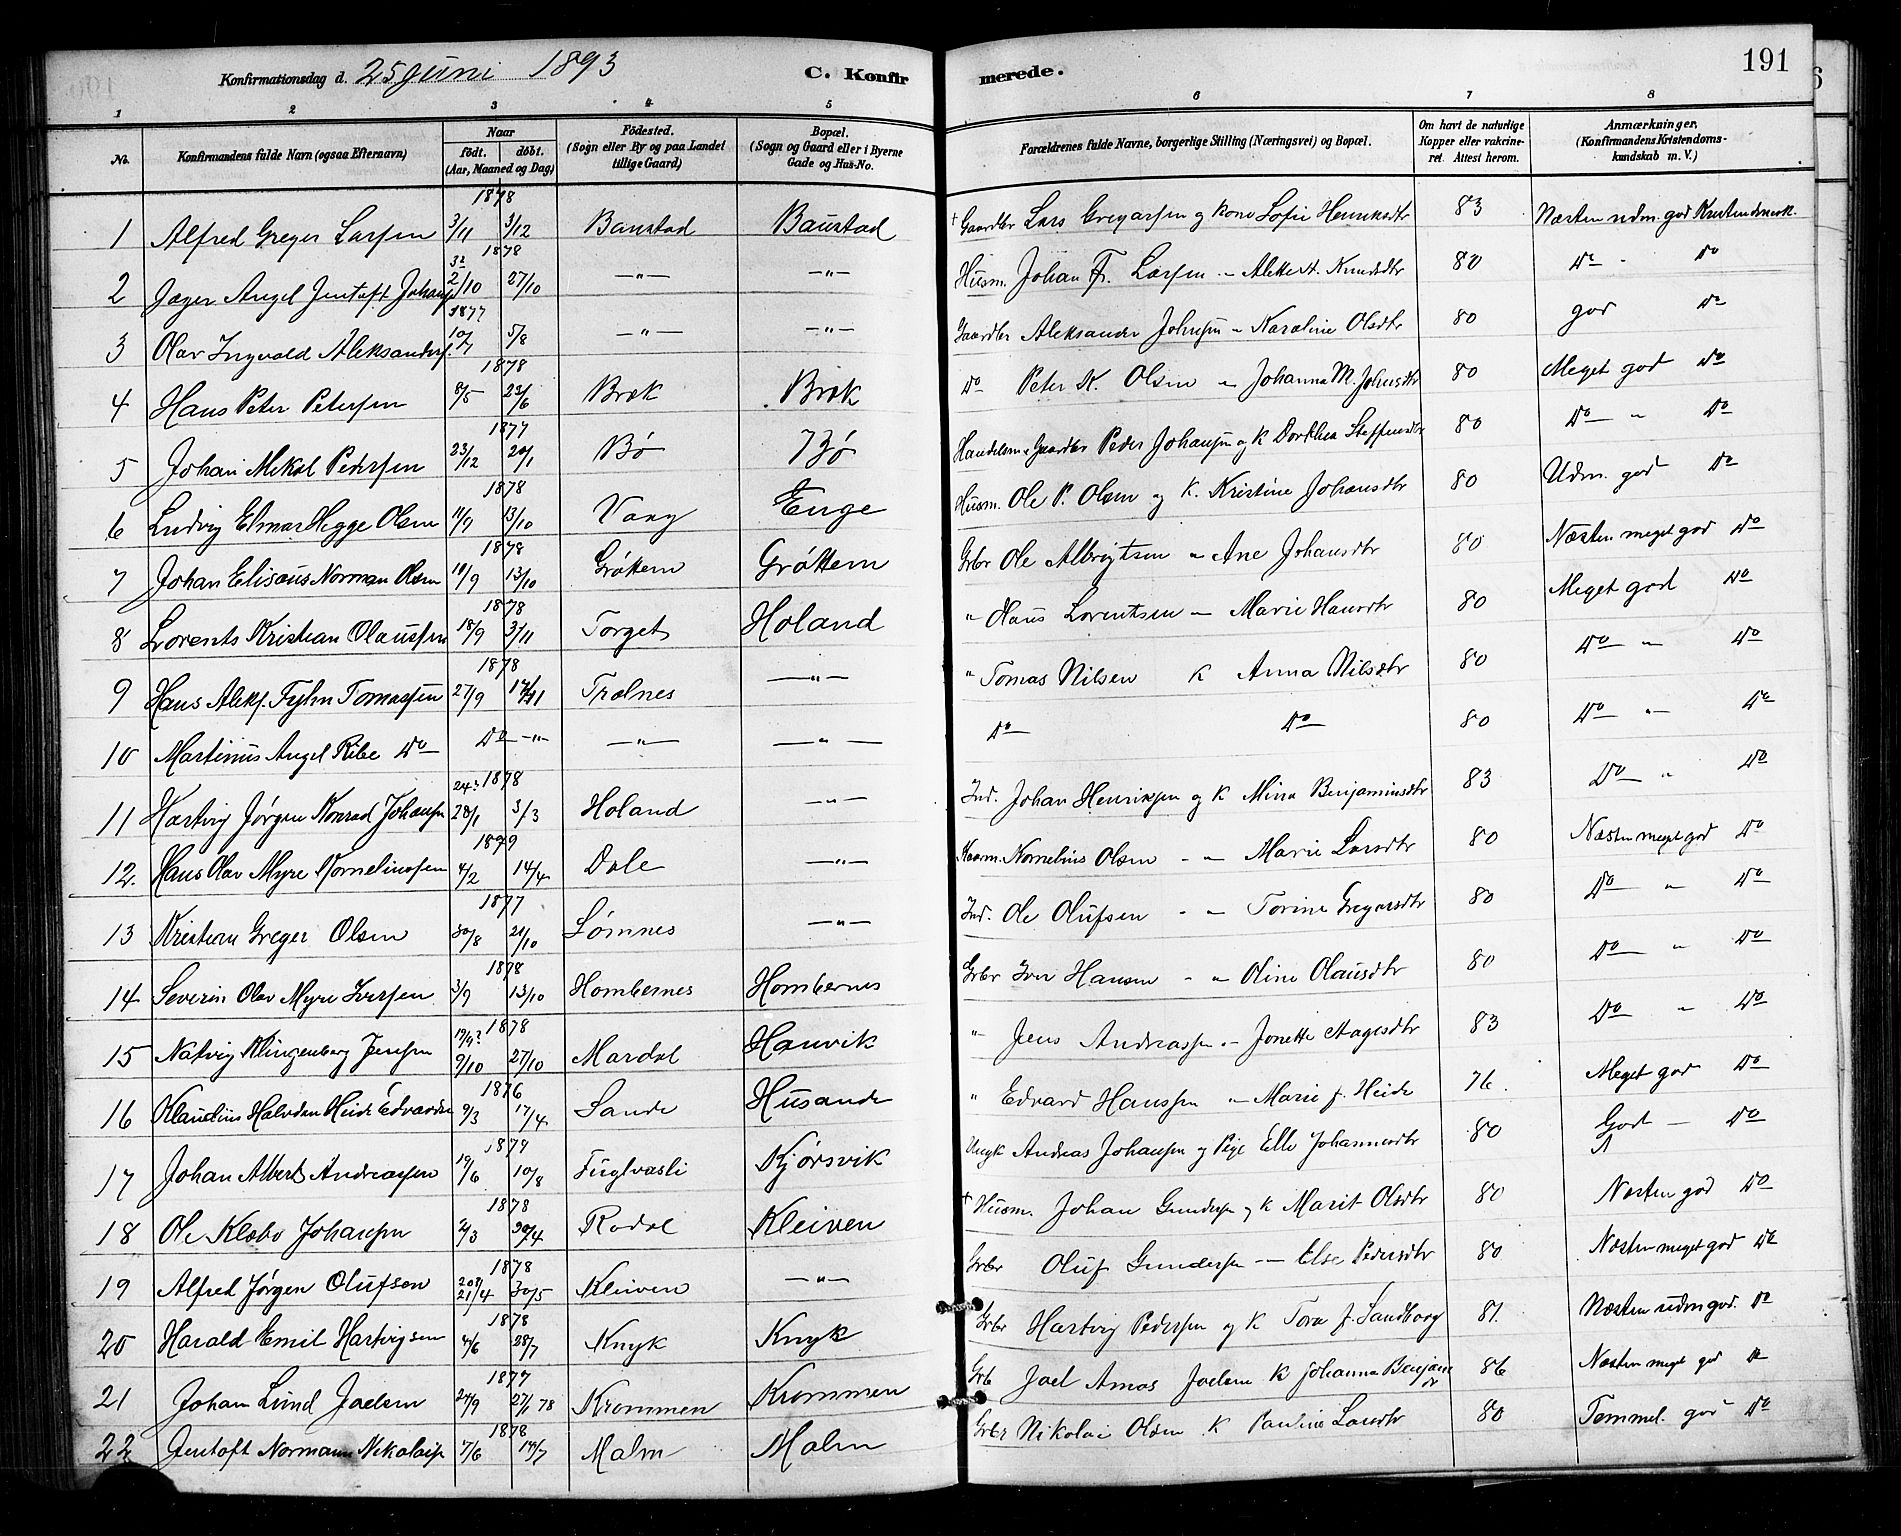 191
Konfirmationsdag d. 25 Juni 1893 C. Konfirmerede.
1 2 3 4 5 6 7 8
No. Konfirmandens fulde Navn (ogsaa Efternavn) Naar født. døbt. (Aar, Maaned og Dag) Fødested. (Sogn eller By og paa Landet tillige Gaard) Bopæl. (Sogn og Gaard eller i Byerne Gade og Hus-No. Forældrenes fulde Navne, borgerlige Stilling (Næringsvei) og Bopæl. Om havt de naturlige Kopper eller vakcineret. Attest herom. Anmærkninger, (Konfirmandens Kristendomskundskab m. V.)
1878
1 Alfred Greger Larsen 3/11 3/12 Baustad Baustad † Gaardbr Lars Gregarsen g Kone Sofie Henriksdtr 83 Næsten udm. god Kristendomsk.
1878
2 Jæger Angel Jentoft Johans 2/10 27/10 —"— —"— Husm. Johan Fr. Larsen " Alekte Knudsdtr 80 Do " Do
1877
3 Olav Ingvald Aleksanders. 10/7 5/8 —"— —"— Gaardbr Aleksander Johnsen " Karoline Olsdtr 80 god Do
1878
4 Hans Peter Petersen 8/5 23/6 Bræk Bræk Do Peter K. Olsen " Johanna M. Johnsdtr 80 Meget god Do
1877
5 Johan Mikal Pedersen 23/12 20/1 Bø Bø Handelsm. Gaardbr Peder Johansen g K Dorthea Steffensdtr 80 Do " Do
1878
6 Ludvig Elmar Hegge Olsen 11/9 13/10 Vang Enge Husm. Ole P. Olsen og K. Kristine Johansdtr 80 Udm. god Do
1878
7 Johan Elisæus Norman Olsen 10/9 13/10 Grøttem Grøttem Grbr Ole Albrigtsen " Ane Johansdtr 80 Næsten meget god Do
1878
8 Lorents Kristian Olaussen 18/9 3/11 Torget Holand " Olaus Lorentsen " Marie Hansdtr 80 Meget god Do
1878
9 Hans Aleks. Fyhn Tomassen 27/9 17/11 Trælnes —"— " Tomas Nilsen K Anna Nilsdtr 80 Do " Do
10 Martinus Angel Ribe Do Do —"— —"— —"— Do Do 80 Do " Do
1878
11 Hartvig Jørgen Konrad Johansn 28/1 3/3 Holand —"— Ind. Johan Henriksen og K Mina Benjaminsdtr 83 Do " Do
1879
12. Hans Olav Myre Kornelinssen 4/2 14/4 Dale —"— Kaarm. Kornelius Olsen " " Marie Larsdtr 80 Næsten meget god Do
1877
13 Kristian Greger Olsen 30/8 21/10 Sømnes —"— Ind. Ole Olufsen " " Torine Gregersdtr 80 Do " Do
1878
14 Severin Olav Myre Iversen 3/9 13/10 Hombernes Hombernes Grbr Iver Hansen " " Oline Olausdtr 80 Do " Do
1878
15 Natvig Klingenberg Jensen 9/10 27/10 Mardal Hanvik " Jens Andreassen " Jonette Aagesdtr 83 Do " Do
1876
16 Klaudius Halvdan Heide Edvardsn 9/3 17/4 Sande Husande " Edvard Hanssen " Marie f. Heide 76. Meget god Do
1879
17 Johan Albert Andreassen 19/6 10/8 Fuglvasli Kjørsvik Ungk Andreas Johansen g Pige Elle Johannesdtr 80 God — Do
1878
18 Ole Klæbo Johansen 2/3 30/4 Rodal Kleiven † Husm. Johan Gundersen g K Marit Olsdtr 80 Næsten god Do
1878
19 Alfred Jørgen Olufsen 21/4 30/5 Kleiven —"— Grbr Oluf Gundersen — Else Pedersdtr 80 Næsten meget god Do
1878
20 Harald Emil Hartvigsen 4/6 28/7 Knyk Knyk Grbr Hartvig Pedersen og K Tora f. Sandborg 81. Næsten udm god. Do
1877
21 Johan Lund Joelsen 24/9 27/1 78 Krommen Krommen Grb Joel Amos Joelsen K Johanna Benjamindr 86 Næsten meget god Do
1878
22 Jentoft Normann Nikolais 7/6 14/7 Malm Malm Grbr Nikolai Olsen K Pauline Larsdtr 80 Temmel. god Do